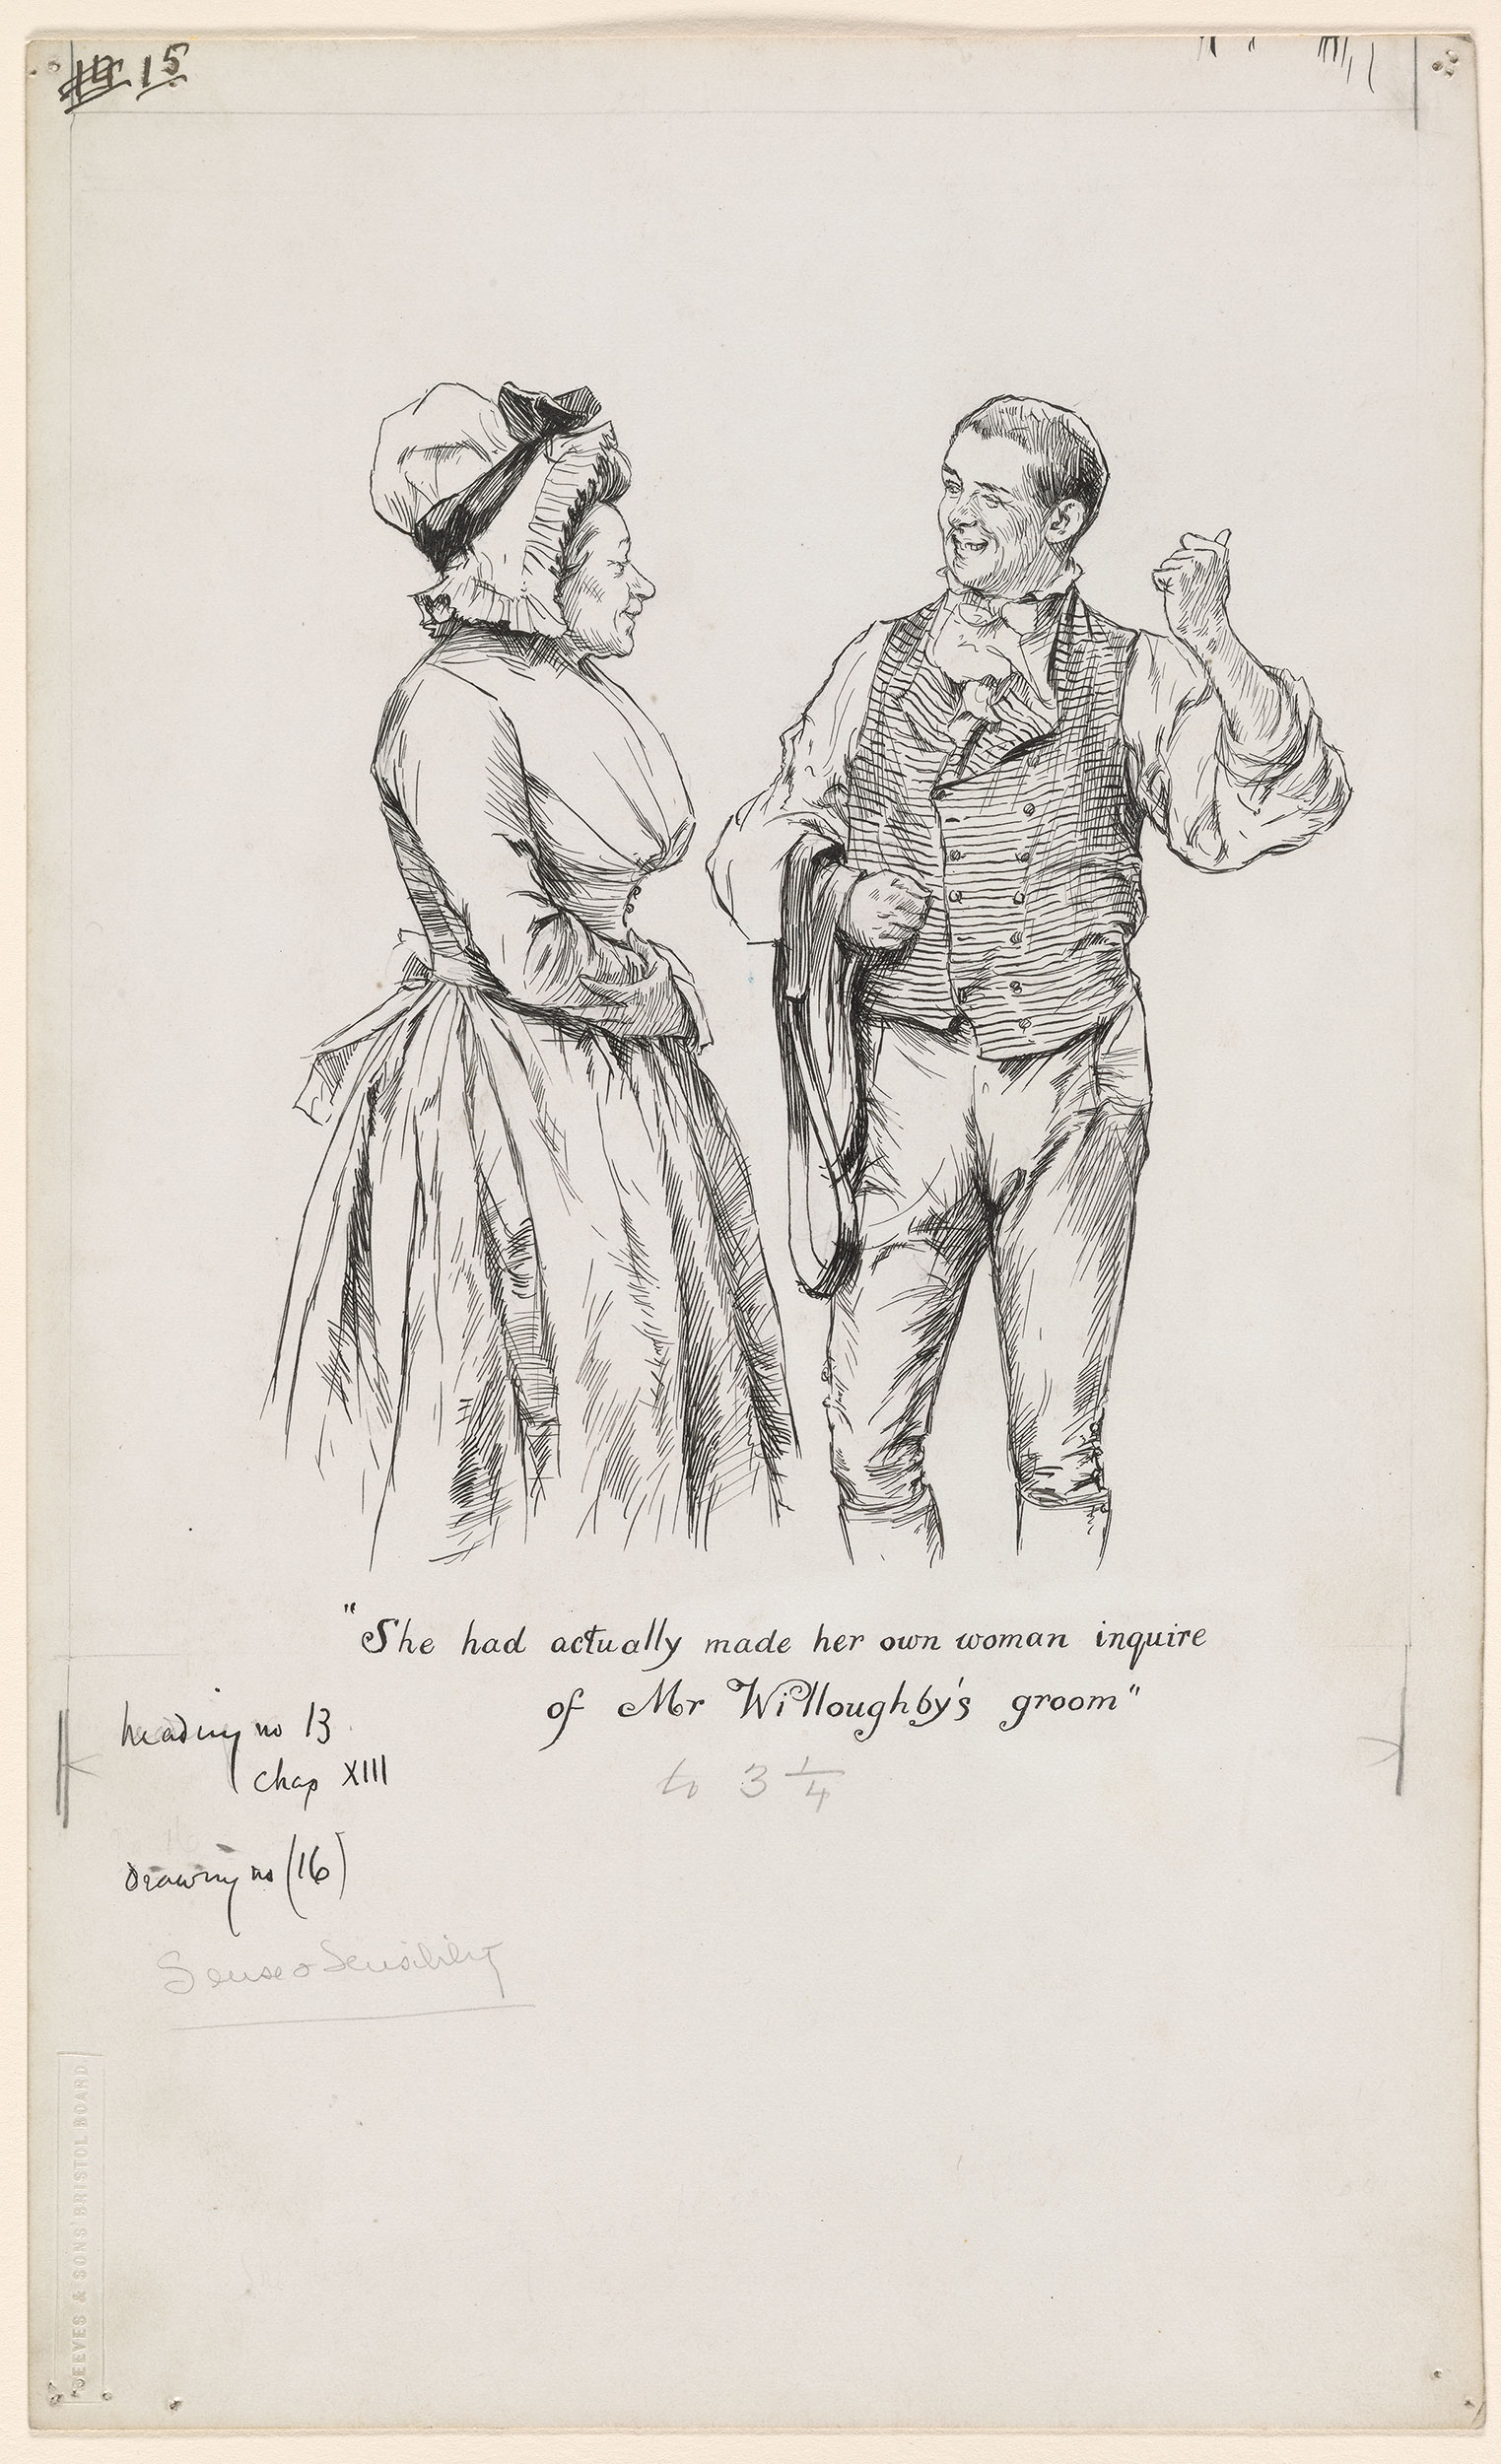 15
"She had actually made her own woman inquire
of Mr Willoughby's groom"
heading no 13
chap XIII
to 3 1/4
Drawing no (16)
Sense & Sensibility
REEVES & SONS' BRISTOL BOARD